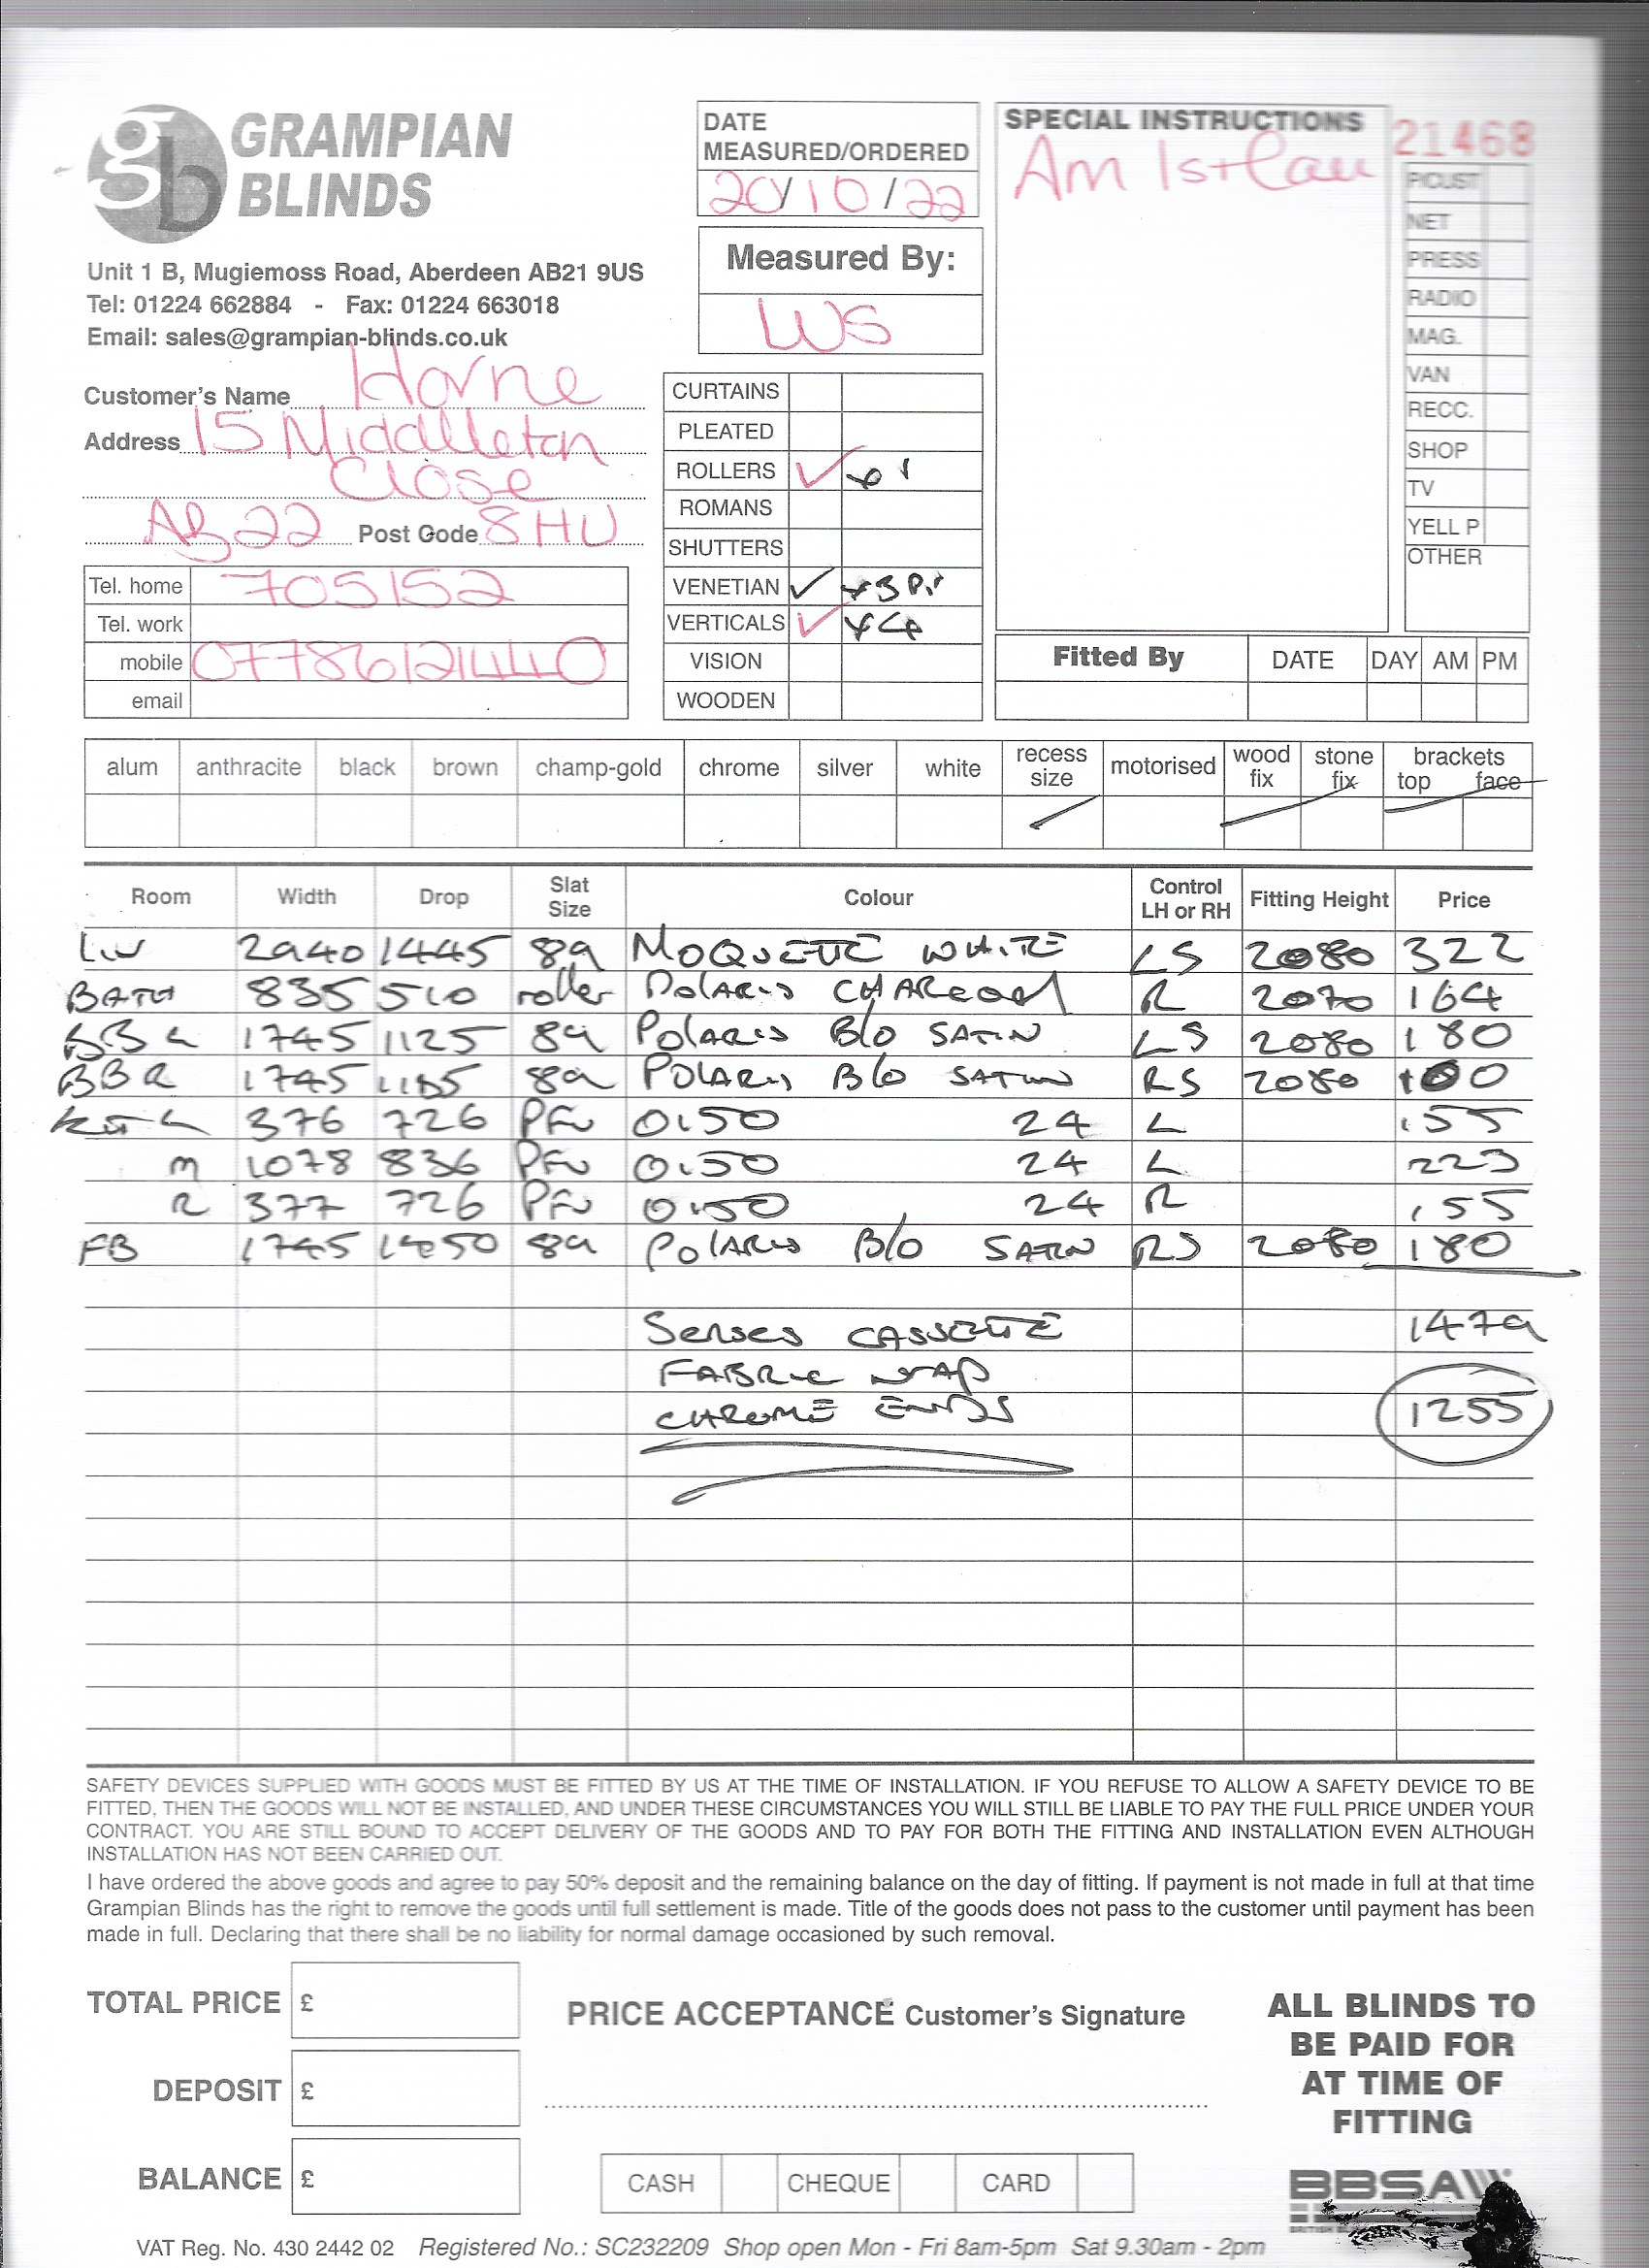 gb GRAMPIAN BLINDS
Unit 1 B, Mugiemoss Road, Aberdeen AB21 9US
Tel: 01224 662884 - Fax: 01224 663018
Email: sales@grampian-blinds.co.uk
DATE MEASURED/ORDERED
20/10/22
Measured By:
LWS
SPECIAL INSTRUCTIONS
Am 1st Call
21468
P/CUST
NET
PRESS
RADIO
MAG.
VAN
RECC.
SHOP
TV
YELL P
OTHER
Customer's Name Horne
Address 15 Middleton
Close
AB22 Post Code 8HU
Tel. home 705152
Tel. work
mobile 07786121440
email
CURTAINS
PLEATED
ROLLERS ✓ x1
ROMANS
SHUTTERS
VENETIAN ✓ x3 P.
VERTICALS ✓ x4
VISION
WOODEN
Fitted By DATE DAY AM PM
alum anthracite black brown champ-gold chrome silver white recess size motorised wood fix stone fix brackets top face
Room Width Drop Slat Size Colour Control LH or RH Fitting Height Price
LW 2940 1445 89 MOQUETTE WHITE LS 2080 322
BATH 835 510 roller POLARIS CHARCOAL R 2070 164
BBL 1745 1125 89 POLARIS B/O SATIN LS 2080 180
BBR 1745 89 POLARIS B/O SATIN RS 2080
KIT L 376 726 PFW 0150 24 L 155
M 1078 836 PFW 0150 24 L 223
R 377 726 PFW 0150 24 R 155
FB 1745 1050 89 POLARIS B/O SATIN RS 2080 180
SENSES CASSETTE 1479
FABRIC WRAP
CHROME ENDS 1255
SAFETY DEVICES SUPPLIED WITH GOODS MUST BE FITTED BY US AT THE TIME OF INSTALLATION. IF YOU REFUSE TO ALLOW A SAFETY DEVICE TO BE
FITTED, THEN THE GOODS WILL NOT BE INSTALLED, AND UNDER THESE CIRCUMSTANCES YOU WILL STILL BE LIABLE TO PAY THE FULL PRICE UNDER YOUR
CONTRACT. YOU ARE STILL BOUND TO ACCEPT DELIVERY OF THE GOODS AND TO PAY FOR BOTH THE FITTING AND INSTALLATION EVEN ALTHOUGH
INSTALLATION HAS NOT BEEN CARRIED OUT.
I have ordered the above goods and agree to pay 50% deposit and the remaining balance on the day of fitting. If payment is not made in full at that time
Grampian Blinds has the right to remove the goods until full settlement is made. Title of the goods does not pass to the customer until payment has been
made in full. Declaring that there shall be no liability for normal damage occasioned by such removal.
TOTAL PRICE £
DEPOSIT £
BALANCE £
PRICE ACCEPTANCE Customer's Signature
CASH CHEQUE CARD
ALL BLINDS TO
BE PAID FOR
AT TIME OF
FITTING
BBSA
VAT Reg. No. 430 2442 02 Registered No.: SC232209 Shop open Mon - Fri 8am-5pm Sat 9.30am - 2pm